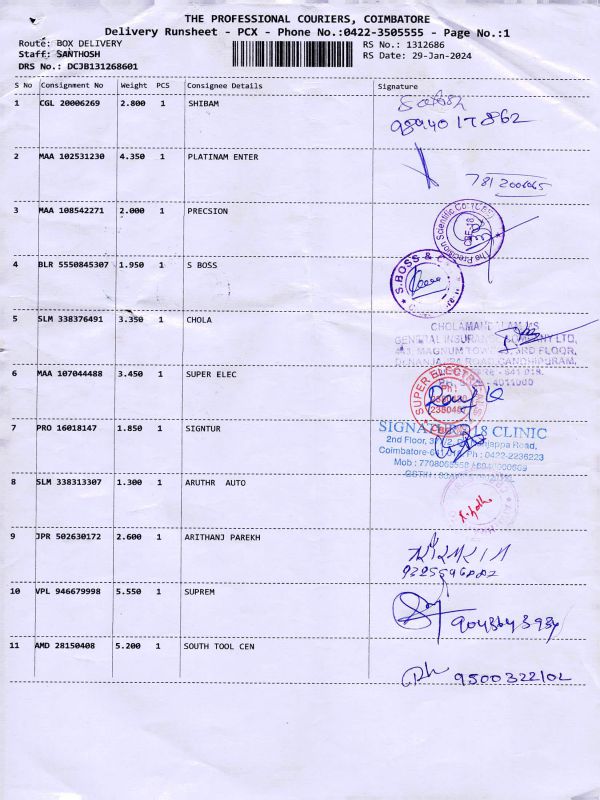 THE PROFESSIONAL COURIERS, COIMBATORE
Delivery Runsheet - PCX - Phone No.:0422-3505555 - Page No.:1
Route: BOX DELIVERY
RS No.: 1312686
Staff: SANTHOSH
RS Date: 29-Jan-2024
DRS No.: DCJB131268601
S No Consignment No Weight PCS Consignee Details Signature
1 CGL 20006269 2.800 1 SHIBAM
9894017862
2 MAA 102531230 4.350 1 PLATINAM ENTER
3 MAA 108542271 2.000 1 PRECSION
The Precision Scientific Co. (CBE)
4 BLR 5550845307 1.950 1 S BOSS
S.BOSS &
5 SLM 338376491 3.350 1 CHOLA
CHOLAMANDALAM MS
GENERAL INSURANCE COMPANY LTD,
6 MAA 107044488 3.450 1 SUPER ELEC
SUPER ELECTRICALS
7 PRO 16018147 1.850 1 SIGNTUR
SIGNATURE 18 CLINIC
2nd Floor,
Coimbatore Ph : 0422-2236223
Mob :
8 SLM 338313307 1.300 1 ARUTHR AUTO
9 JPR 502630172 2.600 1 ARITHANJ PAREKH
10 VPL 946679998 5.550 1 SUPREM
11 AMD 28150408 5.200 1 SOUTH TOOL CEN
9500322102